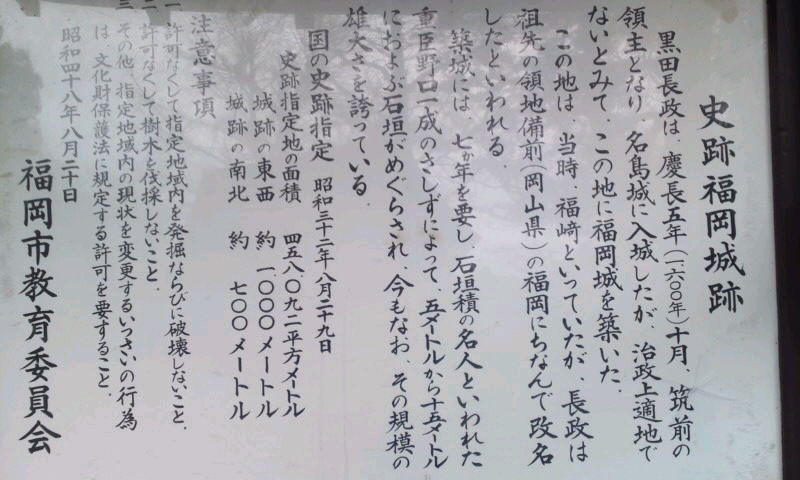 史跡福岡城跡
黒田長政は、慶長五年(一六〇〇年)十月、筑前の
領主となり、名島城に入城したが、治政上適地で
ないとみて、この地に福岡城を築いた。
この地は、当時、福﨑といっていたが、長政は
祖先の領地備前(岡山県)の福岡にちなんで改名
したといわれる。
築城には、七か年を要し、石垣積の名人といわれた
重臣野口一成のさしずによって、五メートルから十五メートル
におよぶ石垣がめぐらされ、今もなお、その規模の
雄大さを誇っている。
国の史跡指定 昭和三十二年八月二十九日
史跡指定地の面積 四五八〇九二平方メートル
城跡の東西 約 一〇〇〇メートル
城跡の南北 約 七〇〇メートル
注意事項
一 許可なくして指定地域内を発掘ならびに破壊しないこと。
二 許可なくして樹木を伐採しないこと。
三 その他、指定地域内の現状を変更するいっさいの行為
は、文化財保護法に規定する許可を要すること。
昭和四十八年八月二十日
福岡市教育委員会